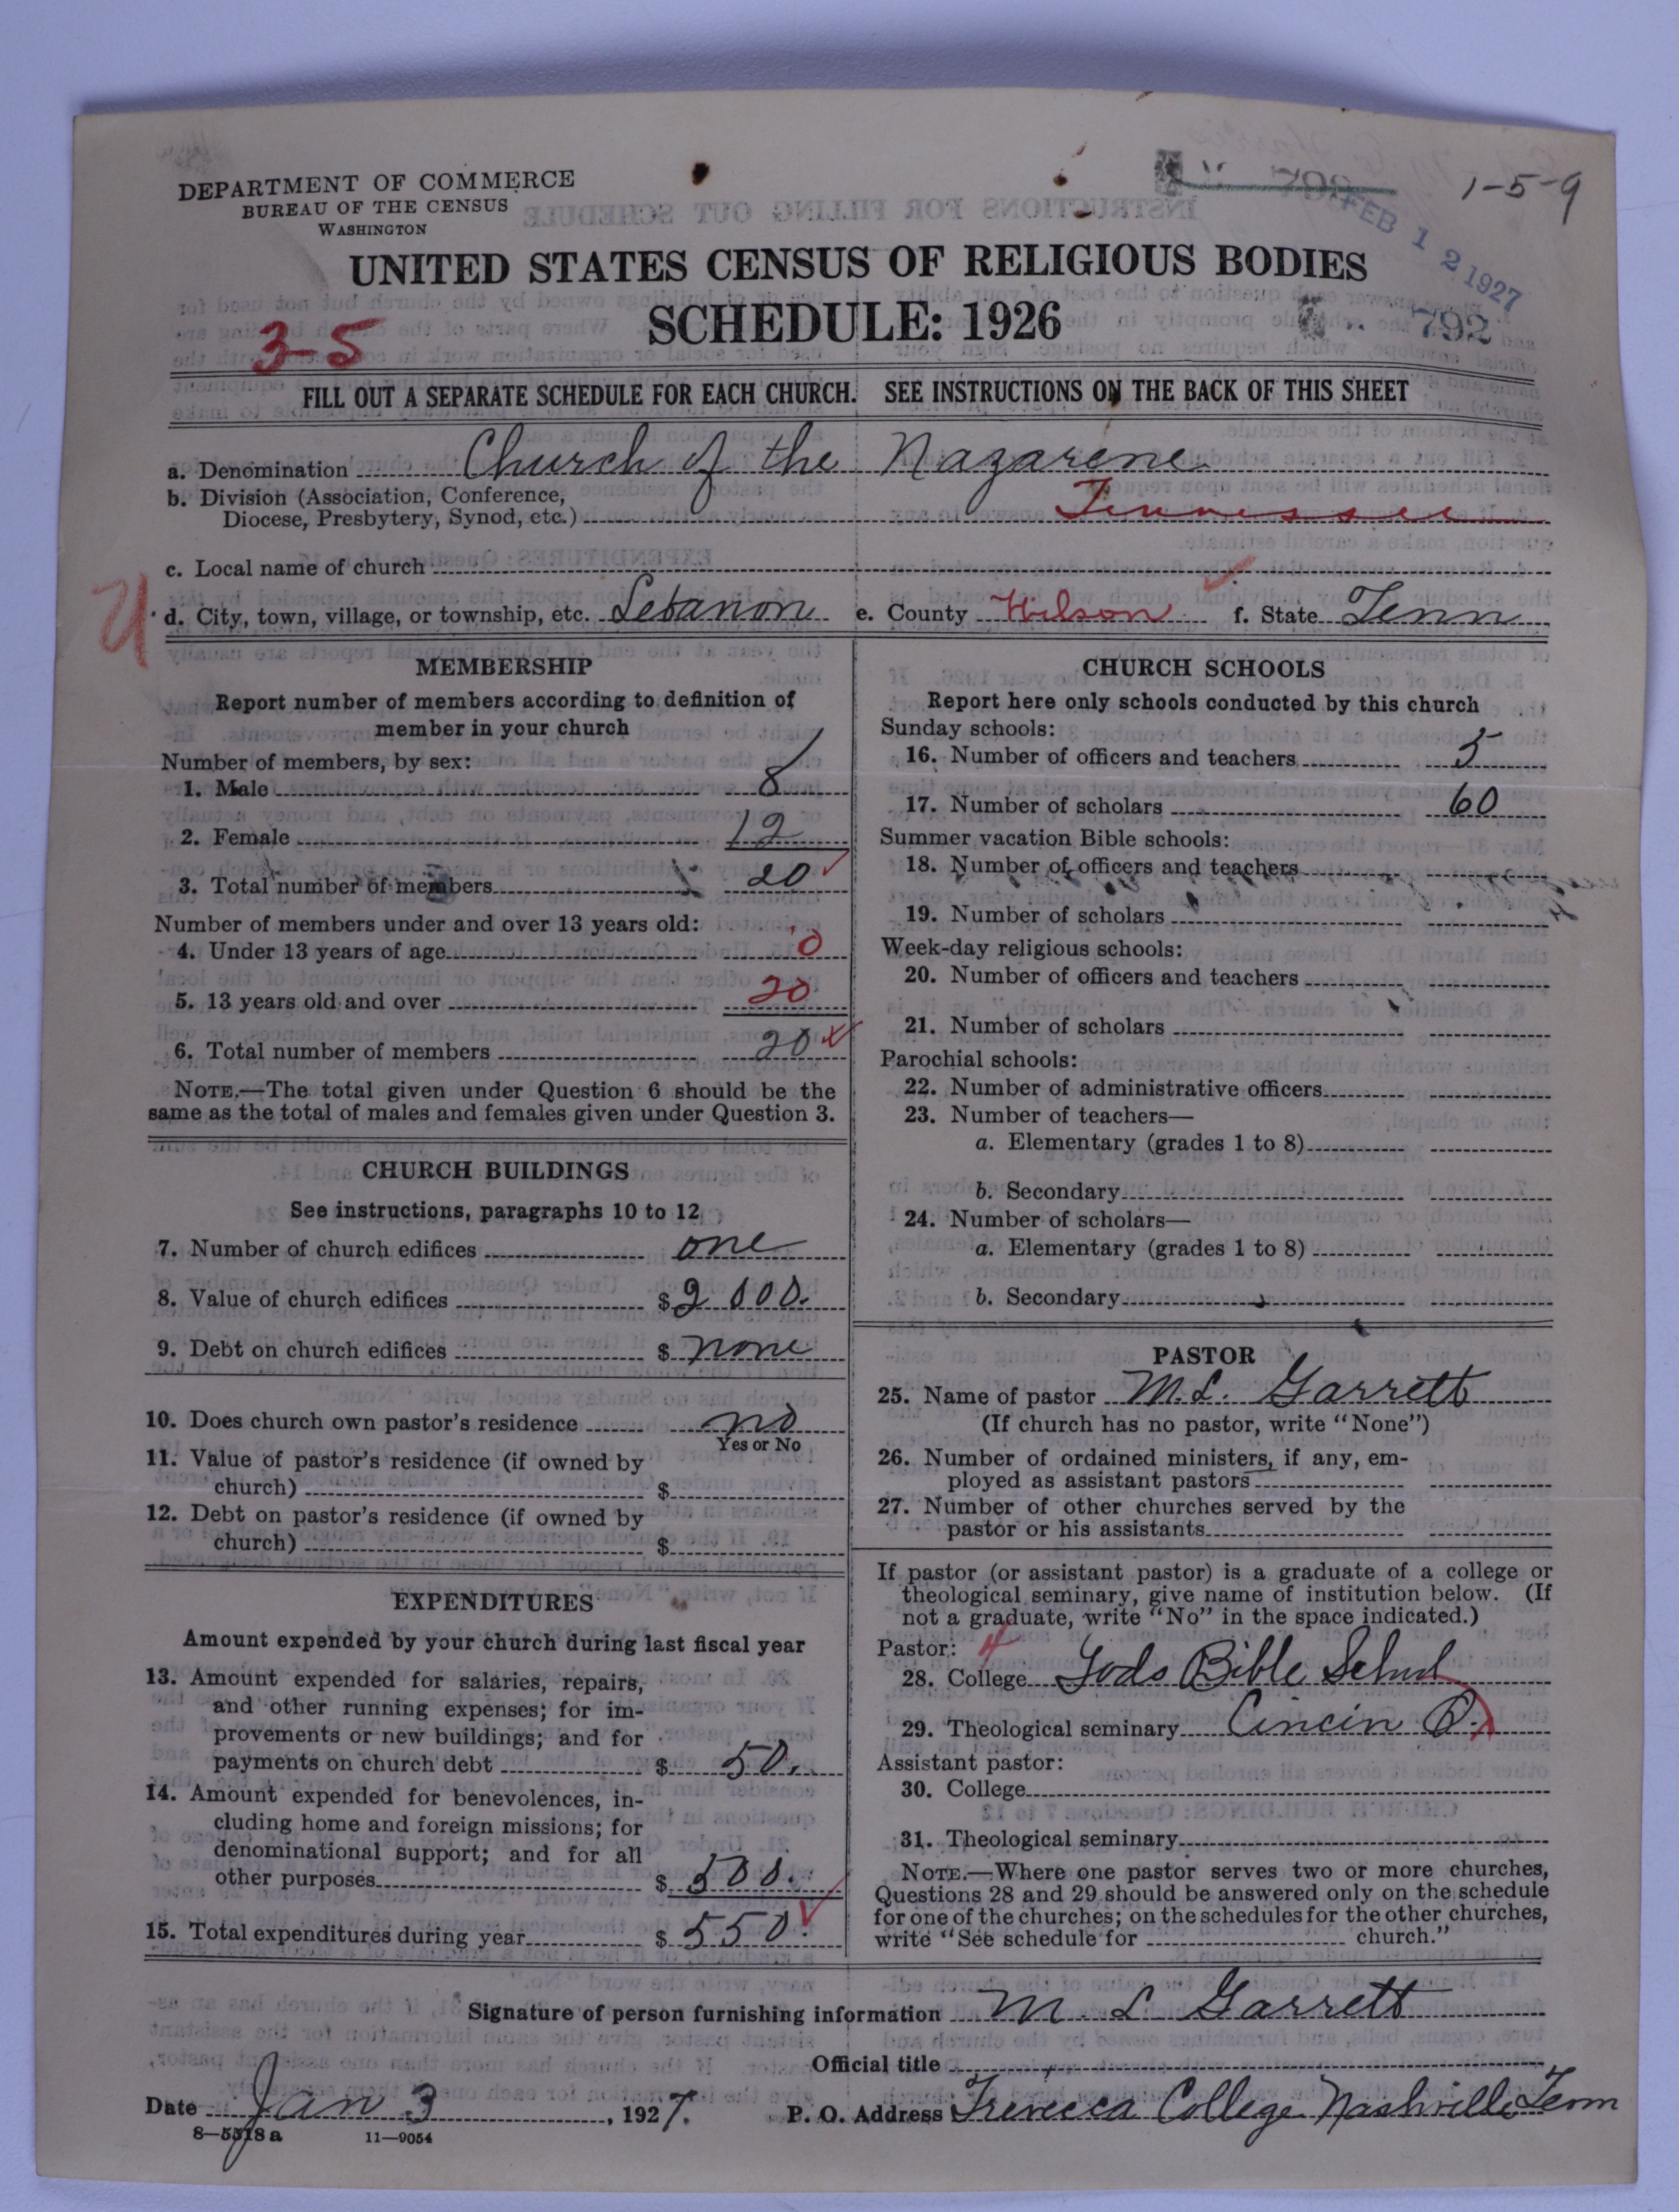 DEPARTMENT OF COMMERCE
BUREAU OF THE CENSUS
WASHINGTON
1-5-9
FEB 12 1927
792
UNITED STATES CENSUS OF RELIGIOUS BODIES
SCHEDULE: 1926
3-5
FILL OUT A SEPARATE SCHEDULE FOR EACH CHURCH. SEE INSTRUCTIONS ON THE BACK OF THIS SHEET
a. Denomination Church of the Nazarene
b. Division (Association, Conference,
Diocese, Presbytery, Synod, etc.) Tennessee
c. Local name of church
d. City, town, village, or township, etc. Lebanon e. County Wilson f. State Tenn
MEMBERSHIP
Report number of members according to definition of
member in your church
Number of members, by sex:
1. Male 8
2. Female 12
3. Total number of members 20
Number of members under and over 13 years old:
4. Under 13 years of age 0
5. 13 years old and over 20
6. Total number of members 20
NOTE.—The total given under Question 6 should be the
same as the total of males and females given under Question 3.
CHURCH BUILDINGS
See instructions, paragraphs 10 to 12
7. Number of church edifices one
8. Value of church edifices $ 2000.
9. Debt on church edifices $ none
10. Does church own pastor's residence no
Yes or No
11. Value of pastor's residence (if owned by
church) $
12. Debt on pastor's residence (if owned by
church) $
EXPENDITURES
Amount expended by your church during last fiscal year
13. Amount expended for salaries, repairs,
and other running expenses; for im-
provements or new buildings; and for
payments on church debt $ 50.
14. Amount expended for benevolences, in-
cluding home and foreign missions; for
denominational support; and for all
other purposes $ 500.
15. Total expenditures during year $ 550.
CHURCH SCHOOLS
Report here only schools conducted by this church
Sunday schools:
16. Number of officers and teachers 5
17. Number of scholars 60
Summer vacation Bible schools:
18. Number of officers and teachers
19. Number of scholars
Week-day religious schools:
20. Number of officers and teachers
21. Number of scholars
Parochial schools:
22. Number of administrative officers
23. Number of teachers—
a. Elementary (grades 1 to 8)
b. Secondary
24. Number of scholars—
a. Elementary (grades 1 to 8)
b. Secondary
PASTOR
25. Name of pastor M. L. Garrett
(If church has no pastor, write "None")
26. Number of ordained ministers, if any, em-
ployed as assistant pastors
27. Number of other churches served by the
pastor or his assistants
If pastor (or assistant pastor) is a graduate of a college or
theological seminary, give name of institution below. (If
not a graduate, write "No" in the space indicated.)
Pastor:
28. College Gods Bible School
29. Theological seminary Cincin O.
Assistant pastor:
30. College
31. Theological seminary
NOTE.—Where one pastor serves two or more churches,
Questions 28 and 29 should be answered only on the schedule
for one of the churches; on the schedules for the other churches,
write "See schedule for church."
Signature of person furnishing information M L Garrett
Official title
Date Jan 3, 1927. P. O. Address Trevecca College Nashville Tenn
8—5518a 11—9054